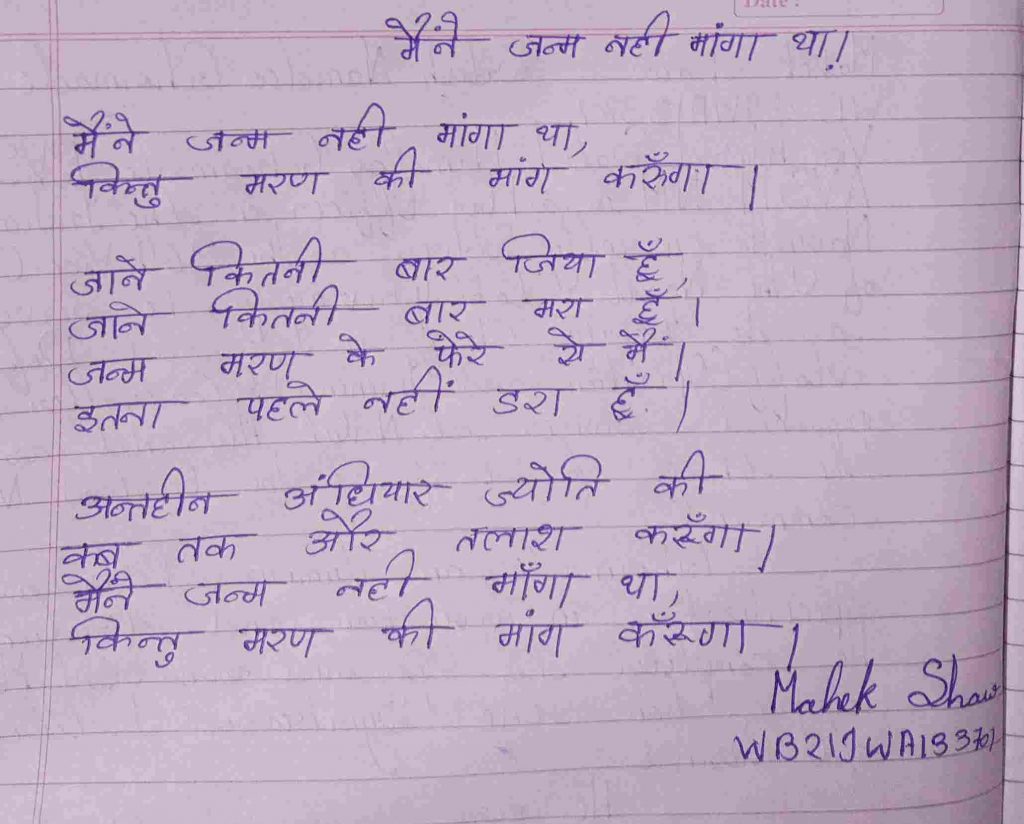 Date :
मैंने जन्म नही मांगा था!
मैंने जन्म नही मांगा था,
किन्तु मरण की मांग करुँगा ।
जाने कितनी बार जिया हूँ,
जाने कितनी बार मरा हूँ ।
जन्म मरण के फेरे से मैं ।
इतना पहले नहीं डरा हूँ ।
अन्तहीन अंधियार ज्योति की
कब तक और तलाश करूँगा ।
मैंने जन्म नही माँगा था,
किन्तु मरण की मांग करूँगा ।
Mahek Shaw